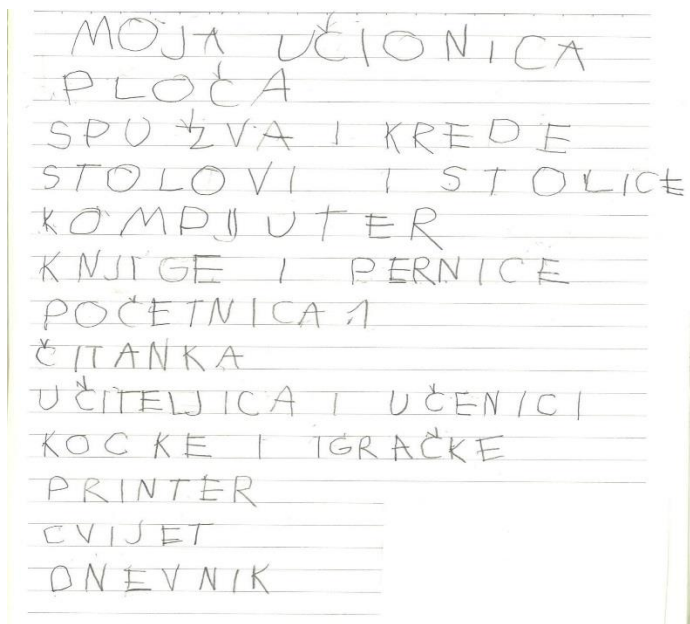 MOJA UČIONICA
PLOČA
SPUŽVA I KREDE
STOLOVI I STOLICE
KOMPJUTER
KNJIGE I PERNICE
POČETNICA 1
ČITANKA
UČITELJICA I UČENICI
KOCKE I IGRAČKE
PRINTER
CVIJET
DNEVNIK